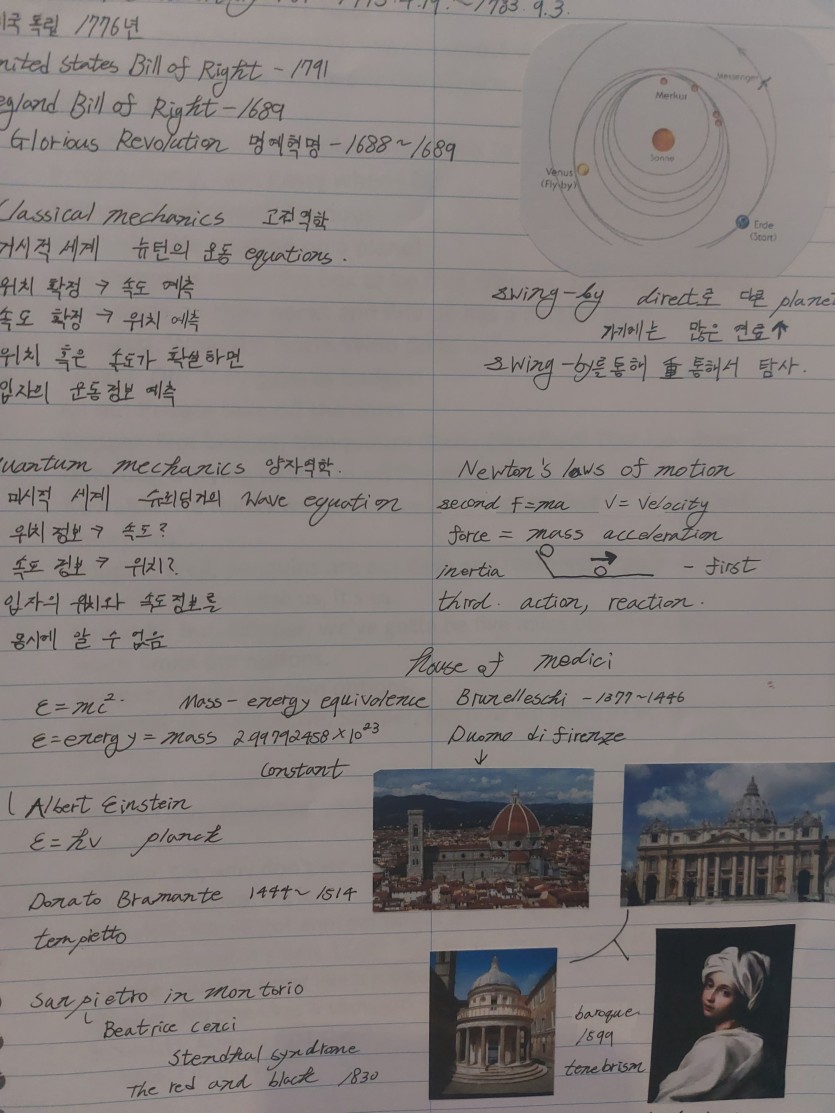 1775.4.19. ~ 1783.9.3.
국 독립 1776年
nited States Bill of Right - 1791
gland Bill of Right - 1689
Glorious Revolution 명예혁명 - 1688 ~ 1689
Classical mechanics 고전역학
거시적 세계 뉴턴의 운동 equations.
위치 확정 → 속도 예측
속도 확정 → 위치 예측
위치 혹은 속도가 확실하면
입자의 운동정보 예측
Merkur
Sonne
Venus
(Fly-by)
Erde
(Start)
swing-by direct로 다른 planet
가기에는 많은 연료↑
swing-by를 통해 重 통해서 탐사.
uantum mechanics 양자역학.
미시적 세계 슈뢰딩거의 wave equation
위치 정보 → 속도?
속도 정보 → 위치?
입자의 위치와 속도정보를
동시에 알 수 없음
Newton's laws of motion
second F=ma V= Velocity
force = mass acceleration
inertia → - first
third. action, reaction.
house of medici
E=mc². Mass-energy equivalence
E=energy = mass 299792458×10²³
constant
Brunelleschi - 1377~1446
Duomo di firenze
↓
Albert Einstein
E=ħv planck
Donato Bramante 1444~1514
tempietto
San pietro in montorio
Beatrice cenci
Stendhal syndrome
The red and black 1830
baroque
1599
tenebrism